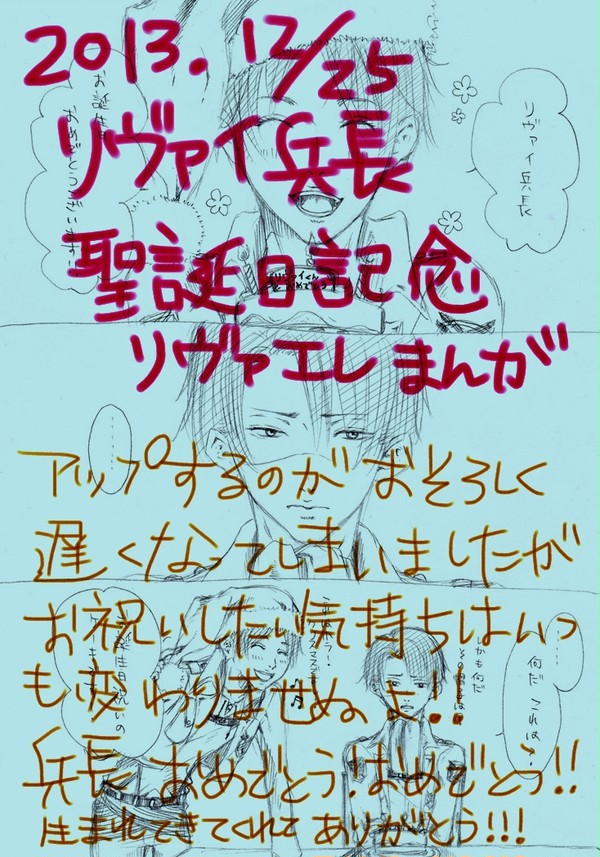 2013.12/25
リヴァイ兵長
聖誕日記念
リヴァエレまんが
アップするのがおそろしく
遅くなってしまいましたが
お祝いしたい気持ちはいつ
も変わりませぬよ!!
兵長おめでとう!おめでとう!!
生まれてきてくれてありがとう!!!
リヴァイ兵長
お誕生日
おめでとうございます
おめでとう
何だこれは…